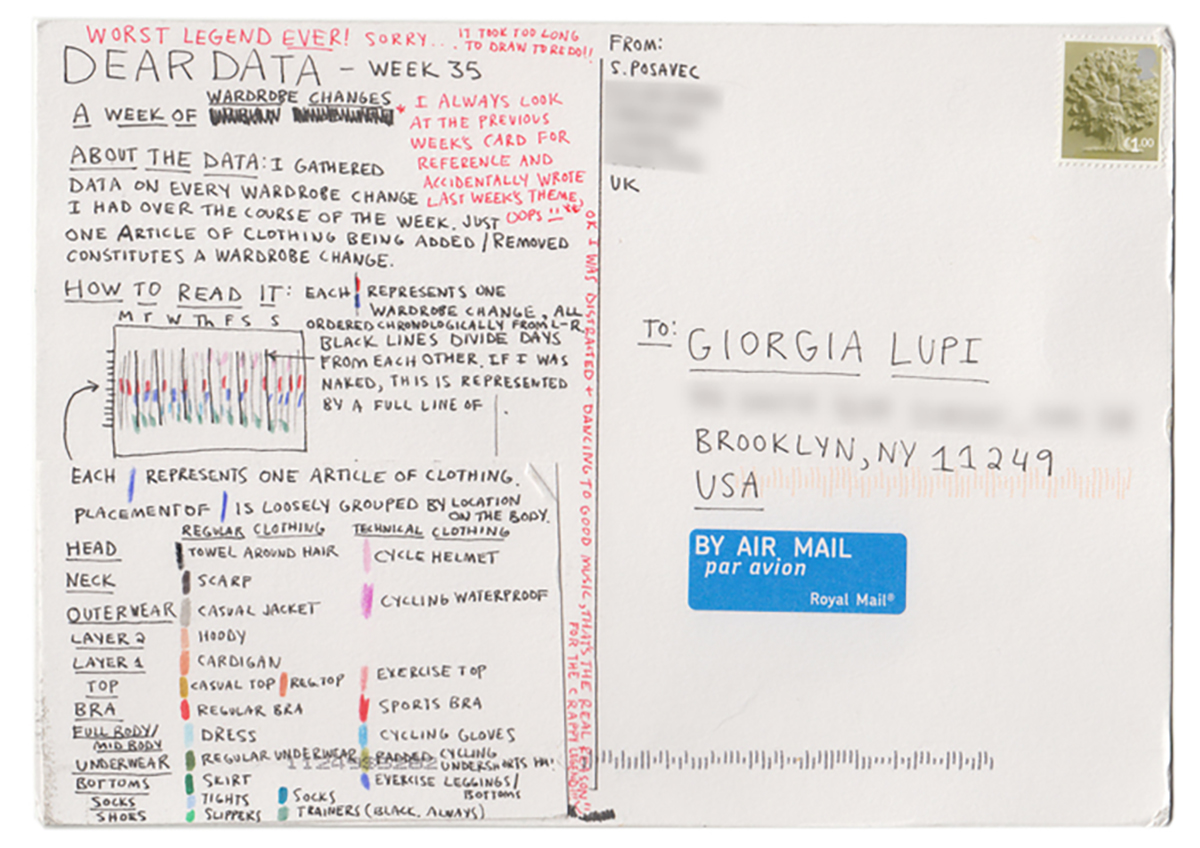 WORST LEGEND EVER! SORRY... IT TOOK TOO LONG
TO DRAW TO REDO!!
DEAR DATA - WEEK 35
WARDROBE CHANGES
A WEEK OF
* I ALWAYS LOOK
AT THE PREVIOUS
WEEK'S CARD FOR
REFERENCE AND
ACCIDENTALLY WROTE
LAST WEEK'S THEME,
OOPS!!
ABOUT THE DATA: I GATHERED
DATA ON EVERY WARDROBE CHANGE
I HAD OVER THE COURSE OF THE WEEK. JUST
ONE ARTICLE OF CLOTHING BEING ADDED/REMOVED
CONSTITUTES A WARDROBE CHANGE.
HOW TO READ IT: EACH REPRESENTS ONE
WARDROBE CHANGE, ALL
ORDERED CHRONOLOGICALLY FROM L-R.
BLACK LINES DIVIDE DAYS
FROM EACH OTHER. IF I WAS
NAKED, THIS IS REPRESENTED
BY A FULL LINE OF .
M T W Th F S S
EACH REPRESENTS ONE ARTICLE OF CLOTHING.
PLACEMENT OF IS LOOSELY GROUPED BY LOCATION
ON THE BODY.
REGULAR CLOTHING TECHNICAL CLOTHING
HEAD TOWEL AROUND HAIR CYCLE HELMET
NECK SCARF
OUTERWEAR CASUAL JACKET CYCLING WATERPROOF
LAYER 2 HOODY
LAYER 1 CARDIGAN
TOP CASUAL TOP REG TOP EXERCISE TOP
BRA REGULAR BRA SPORTS BRA
FULL BODY/
MID BODY DRESS CYCLING GLOVES
UNDERWEAR REGULAR UNDERWEAR PADDED CYCLING
UNDERSHORTS HA!
BOTTOMS SKIRT EXERCISE LEGGINGS/
BOTTOMS
SOCKS TIGHTS SOCKS
SHOES SLIPPERS TRAINERS (BLACK, ALWAYS)
OK I WAS DISTRACTED + DANCING TO GOOD MUSIC, THAT'S THE REAL REASON
FOR THE CRAPPY LEGEND
FROM:
S. POSAVEC
UK
£1.00
TO: GIORGIA LUPI
BROOKLYN, NY 11249
USA
BY AIR MAIL
par avion
Royal Mail®